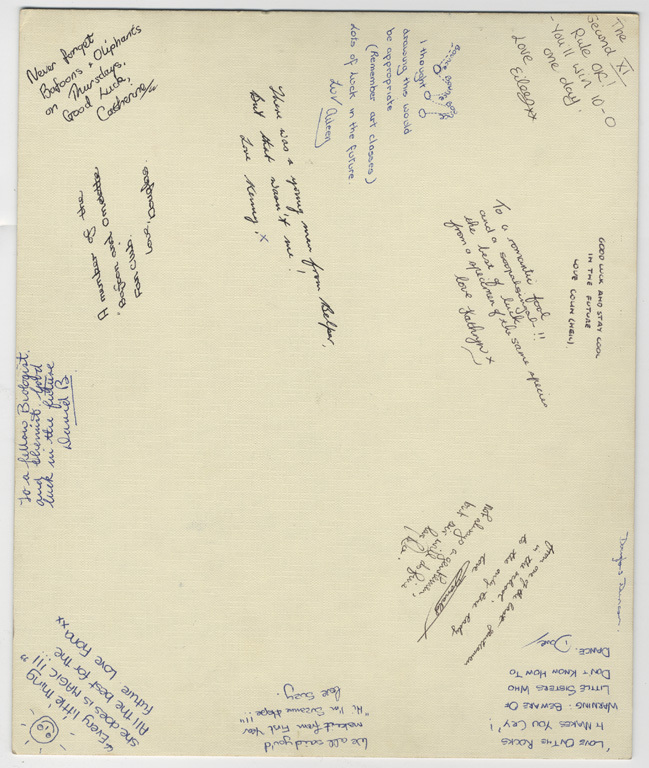 Never forget
Bafoons & Oliphants
on Thursdays.
Good Luck,
Catherine
Bon Bon Bon
I thought
drawing this would
be appropriate
(Remember art classes)
Lots of luck in the future
The
Second XI
Rule OK!
- You'll win 10-0
one day.
Love
Eileen xx
There was a young man from Belper,
But that wasn't me!
Love Kenny. x
A member of the
Bafoon and Omelette
Fan Club.
Love, Douglas.
To a romantic fool
and a soopahsingah!!
the best of luck
from a specimen of the same species
love Kathryn x
GOOD LUCK AND STAY COOL
IN THE FUTURE
LOVE COLIN (HEIN).
To a fellow Biologist
and Chemist, Good
luck in the future
David B
Not always a gentleman,
but
from one of the last gentlemen
in the school!
to the only true lady
love
Douglas Duncan.
'LOVE ON THE ROCKS
IT MAKES YOU CRY'!
WARNING: BEWARE OF
LITTLE SISTERS WHO
DON'T KNOW HOW TO
DANCE.
We all said you'd
make it from First Year
"Hi, I'm Suzanne
love Suzy.
"Every little thing
she does is MAGIC!!!"
All the best for the
future Love Fiona xx